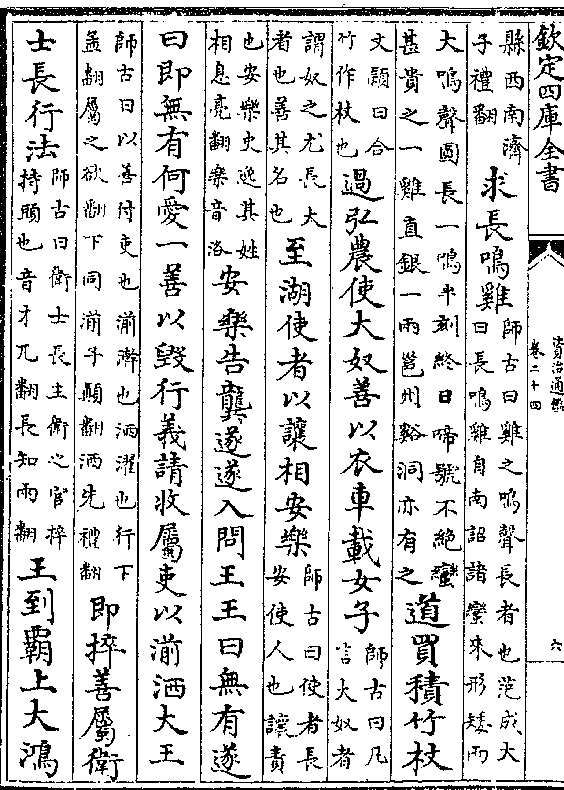 欽定四庫全書
資治通鑑
卷二十四
六
縣西南濟
子禮翻
求長鳴雞
師古曰雞之鳴聲長者也范成大
曰長鳴雞自南詔諸蠻來形矮而
大鳴聲圓長一鳴半刻終日啼號不絶蠻
甚貴之一雞直銀一兩邕州谿洞亦有之
道買積竹杖
文穎曰合
竹作杖也
過弘農使大奴善以衣車載女子
師古曰凡
言大奴者
謂奴之尤長大
者也善其名也
至湖使者以讓相安樂
師古曰使者長
安使人也讓責
也安樂史逸其姓
相息亮翻樂音洛
安樂告龔遂遂入問王王曰無有遂
曰即無有何愛一善以毀行義請收屬吏以湔洒大王
師古曰以善付吏也湔澣也洒濯也行下
孟翻屬之欲翻下同湔子顛翻洒先禮翻
即捽善屬衛
士長行法
師古曰衛士長主衛之官捽
持頭也音才兀翻長知兩翻
王到霸上大鴻